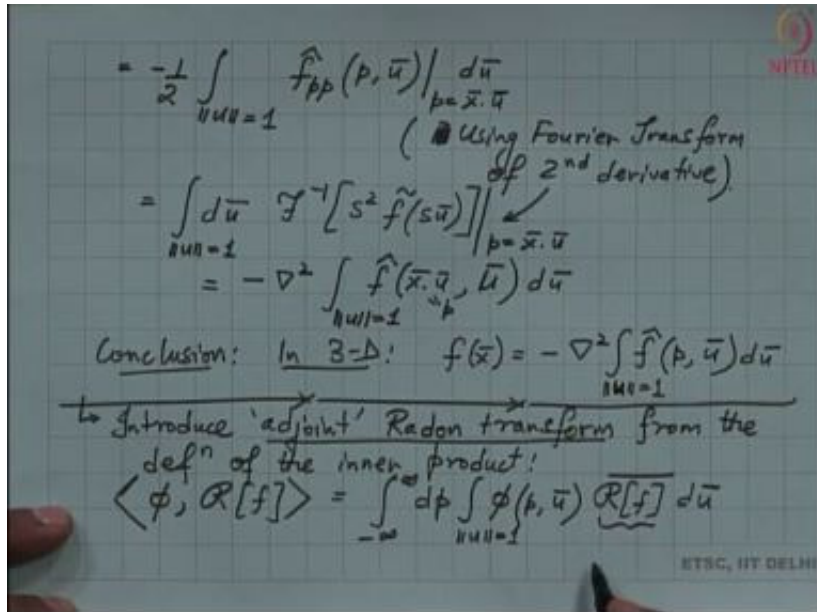 NPTEL
= -1/2 ∫_{||u||=1} f̂_pp (p, ū)|_{p=x̄.ū} dū
( Using Fourier Transform
of 2nd derivative).
= ∫_{||u||=1} dū ℱ⁻¹[s² f̃(sū)]|_{p=x̄.ū}
= -∇² ∫_{||u||=1} f̂(x̄.ū, ū) dū
"p
Conclusion: In 3-D: f(x̄) = -∇² ∫_{||u||=1} f̂(p, ū) dū
↳ Introduce 'adjoint' Radon transform from the
defⁿ of the inner product:
⟨φ, R[f]⟩ = ∫_{-∞}^{∞} dp ∫_{||u||=1} φ(p, ū) \overline{R[f]} dū
ETSC, IIT DELHI